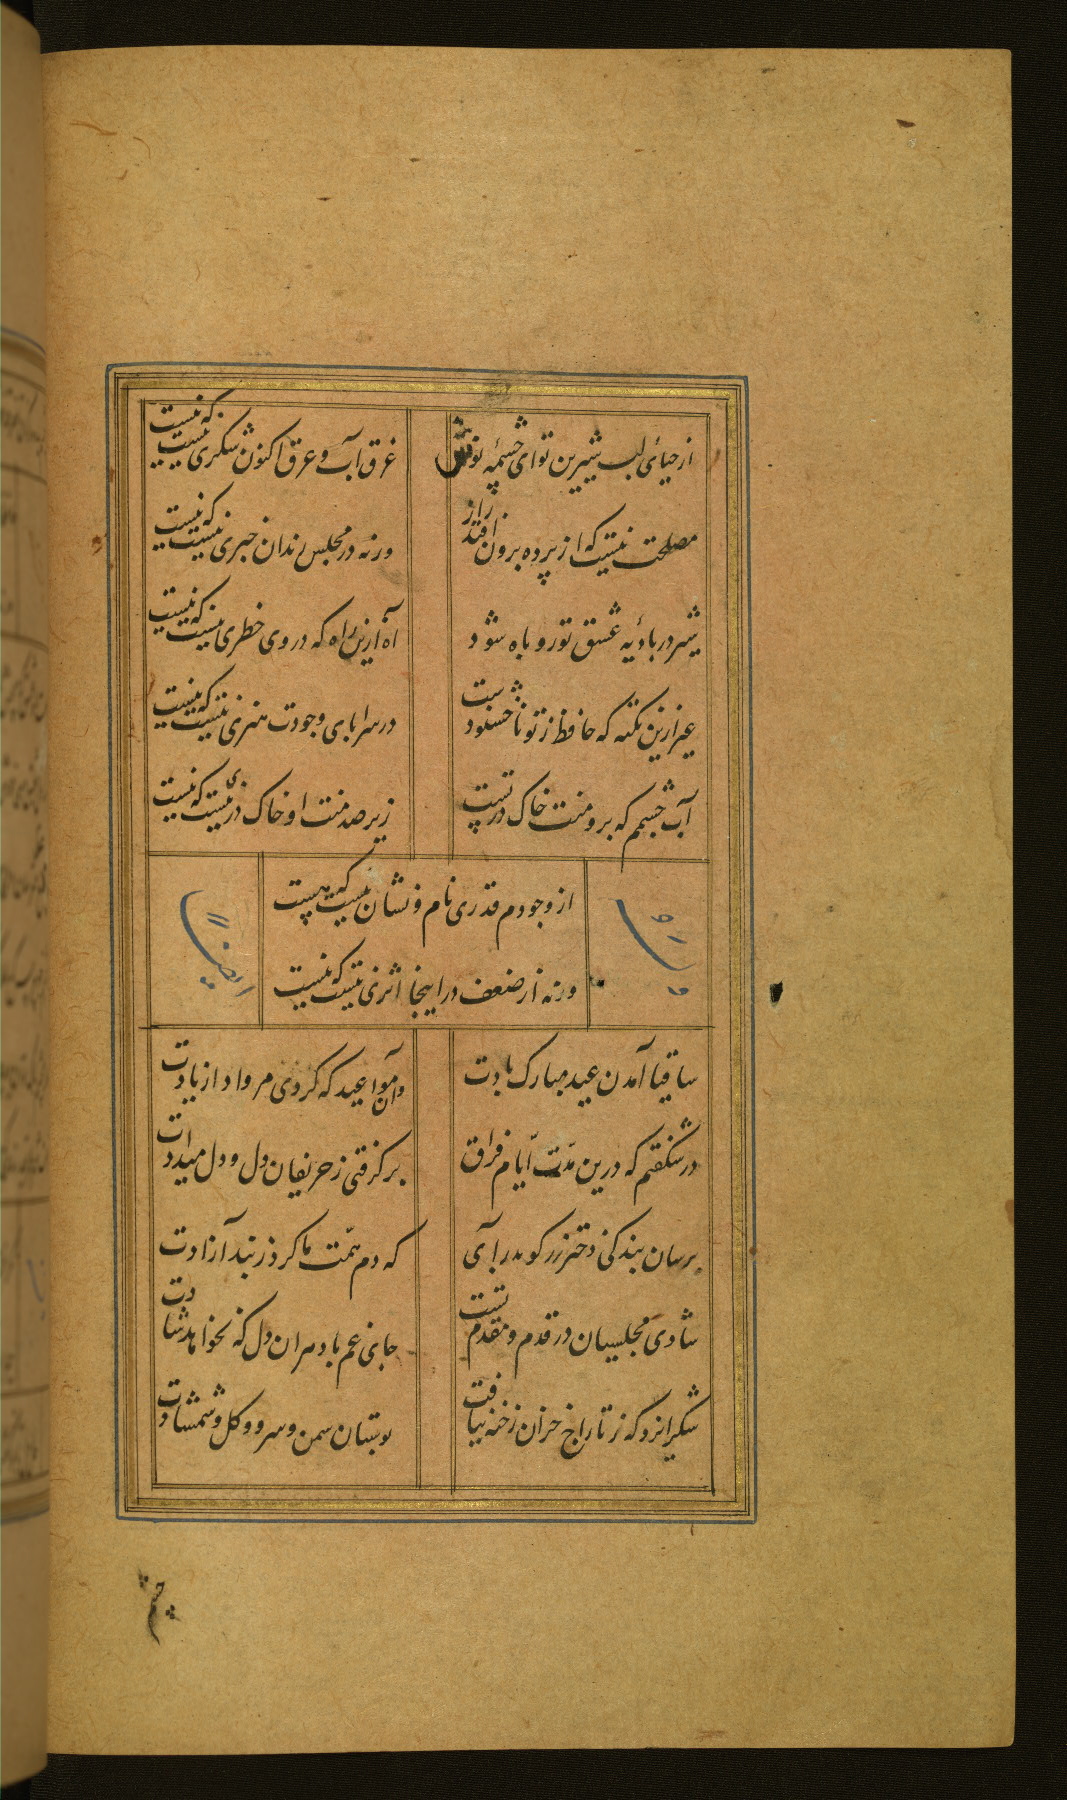 از حیای لب شیرین تو ای چشمهٔ نوش
غرق آب و عرق اکنون شکری نیست که نیست
مصلحت نیست که از پرده برون افتد راز
ورنه در مجلس رندان خبری نیست که نیست
شیر در بادیهٔ عشق تو روباه شود
آه ازین راه که در وی خطری نیست که نیست
غیر ازین نکته که حافظ ز تو ناخشنودست
در سراپای وجودت هنری نیست که نیست
آب چشمم که برو منت خاک در تست
زیر صد منت او خاک دری نیست که نیست
از وجودم قدری نام و نشان نیست که هست
ورنه از ضعف در اینجا اثری نیست که نیست
وله
ایضاً
ساقیا آمدن عید مبارک بادت
وان مواعید که کردی مرواد از یادت
در شگفتم که درین مدّت ایّام فراق
برگرفتی ز حریفان دل و دل میدادت
برسان بندگی دختر رز گو بدر آی
که دم همّت ما کرد ز بند آزادت
شادی مجلسیان در قدم و مقدم تست
جای غم باد مر آن دل که نخواهد شادت
شکر ایزد که ز تاراج خزان رخنه نیافت
بوستان سمن و سرو و گل و شمشادت
چشم